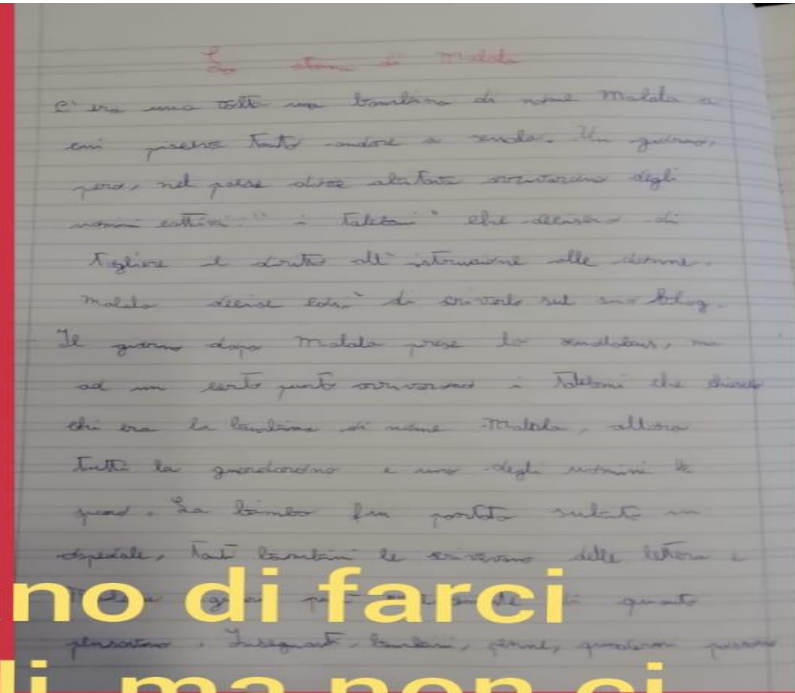 La storia di Malala
C'era una volta una bambina di nome Malala a
cui piaceva tanto andare a scuola. Un giorno,
però, nel paese dove abitava arrivarono degli
uomini cattivi: "i talebani" che decisero di
togliere il diritto all'istruzione alle donne.
Malala decise così di scriverlo sul suo blog.
Il giorno dopo Malala prese lo scuolabus, ma
ad un certo punto arrivarono i talebani che
chi era la bambina di nome Malala, allora
tutti la guardarono e uno degli uomini le
La bimba fu portata subito in
ospedale, tanti bambini le scrivevano delle lettere e
di quanto
Insegnanti, bambini, penne, quaderni possono
no di farci
ma non ci